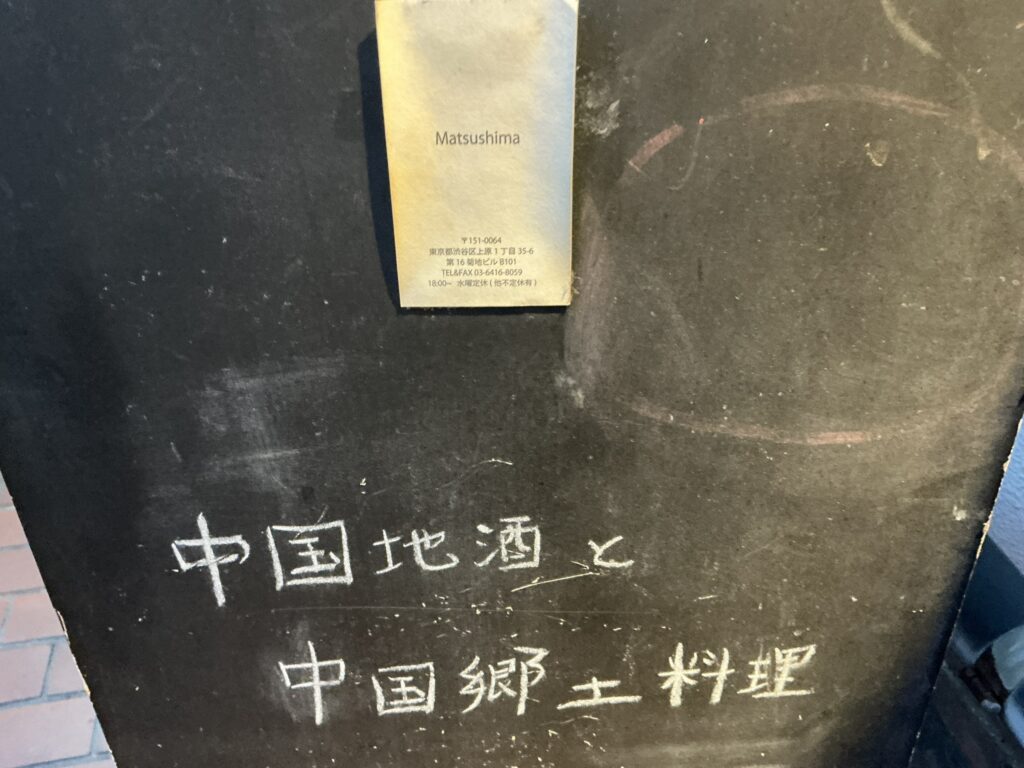 Matsushima
〒151-0064
東京都渋谷区上原1丁目35-6
第16菊地ビル B101
TEL&FAX 03-6416-8059
18:00~ 水曜定休(他不定休有)
中国地酒と
中国郷土料理